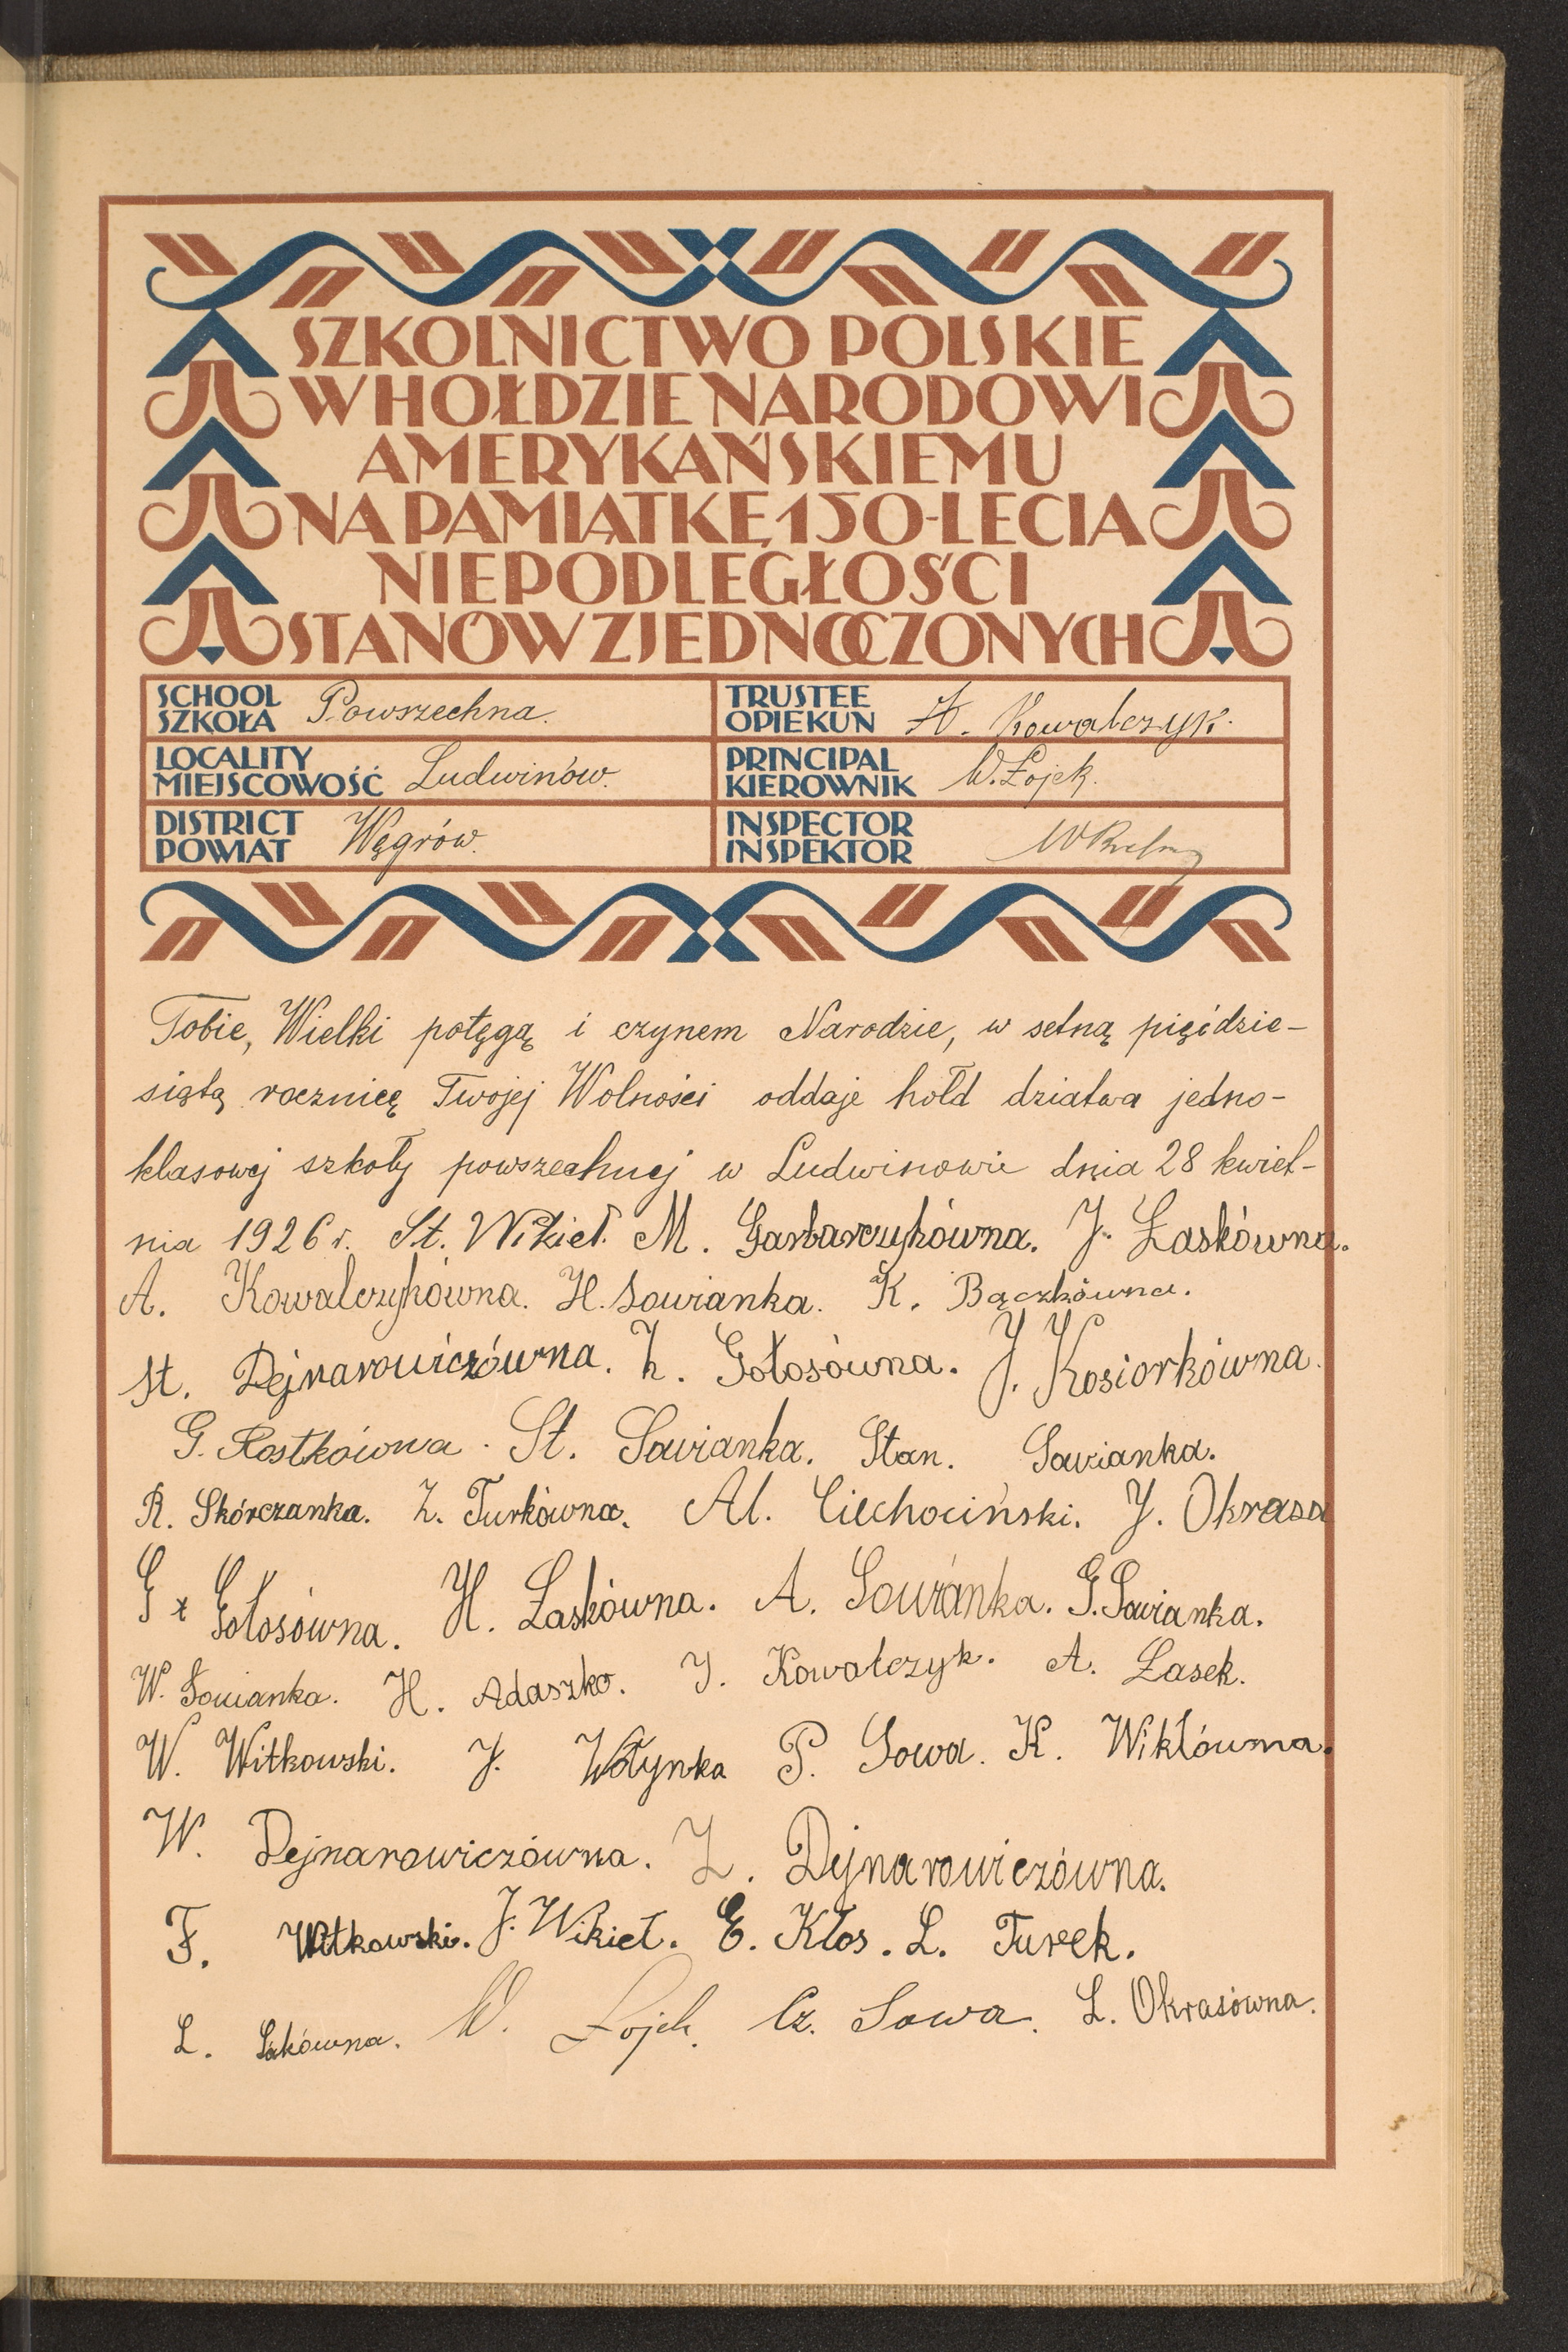 SZKOLNICTWO POLSKIE
W HOŁDZIE NARODOWI
AMERYKAŃSKIEMU
NA PAMIĄTKĘ 150-LECIA
NIEPODLEGŁOŚCI
STANÓW ZJEDNOCZONYCH
SCHOOL
SZKOŁA Powszechna.
TRUSTEE
OPIEKUN Kowalczyk.
LOCALITY
MIEJSCOWOŚĆ Ludwinów.
PRINCIPAL
KIEROWNIK W. Łojek.
DISTRICT
POWIAT Węgrów.
INSPECTOR
INSPEKTOR
Tobie, Wielki potęgą i czynem Narodzie, w setną pięćdzie-
siątą rocznicę Twojej Wolności oddaje hołd dziatwa jedno-
klasowej szkoły powszechnej w Ludwinowie dnia 28 kwiet-
nia 1926 r. St. Wikieł. M. Garbarczykówna. J. Łaskówna.
A. Kowalczykówna. H. Sowianka. K. Bączkówna.
St. Dejnarowiczówna. Z. Gołosówna. J. Kosiorkówna.
G. Kostkówna. St. Sowianka. Stan. Sowianka.
R. Skórczanka. Z. Turkówna. Al. Ciechociński. J. Okrasa
G. Gołosówna. H. Łaskówna. A. Sowianka. G. Sowianka.
W. Sowianka. H. Adaszko. J. Kowalczyk. A. Łasek.
W. Witkowski. J. Wołynka P. Sowa. K. Wikłówna.
W. Dejnarowiczówna. Z. Dejnarowiczówna.
F. Witkowski. J. Wikieł. E. Kłos. L. Turek.
L. W. Łojek. Cz. Sowa. L. Okrasówna.